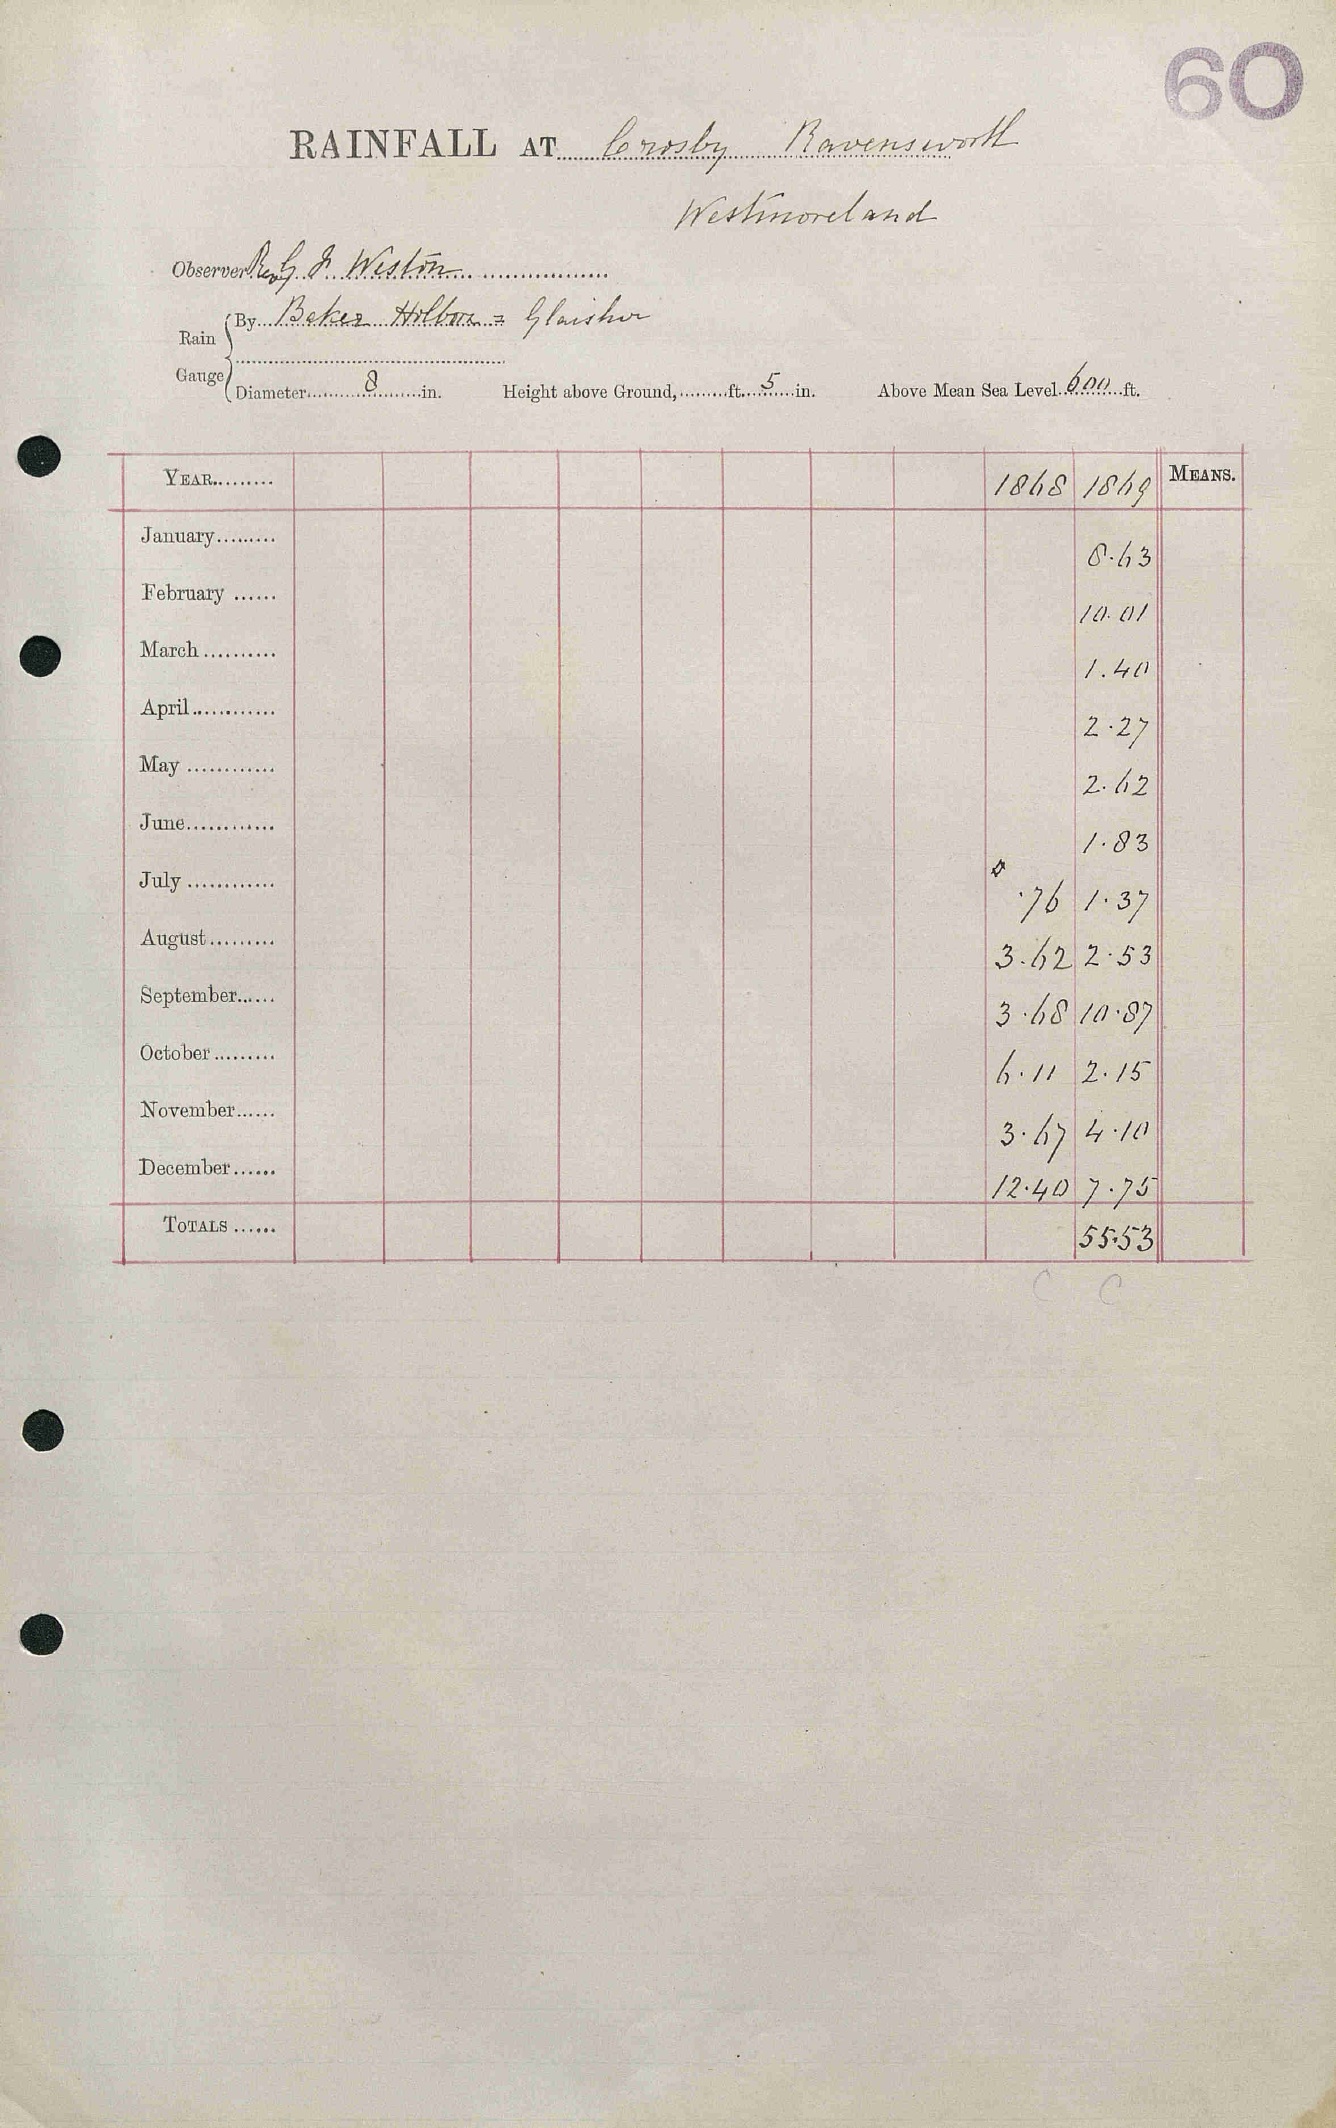 60
RAINFALL AT Crosby Ravensworth
Westmoreland
Observer Rev G F Weston
Rain Gauge
By Baker Holborn = Glaisher
Diameter 8 in. Height above Ground, ft. 5 in. Above Mean Sea Level 600 ft.
YEAR 1868 1869 MEANS.
January 8.63
February 10.01
March 1.40
April 2.27
May 2.62
June 1.83
July .76 1.37
August 3.62 2.53
September 3.68 10.87
October 6.11 2.15
November 3.67 4.10
December 12.40 7.75
TOTALS 55.53
C C